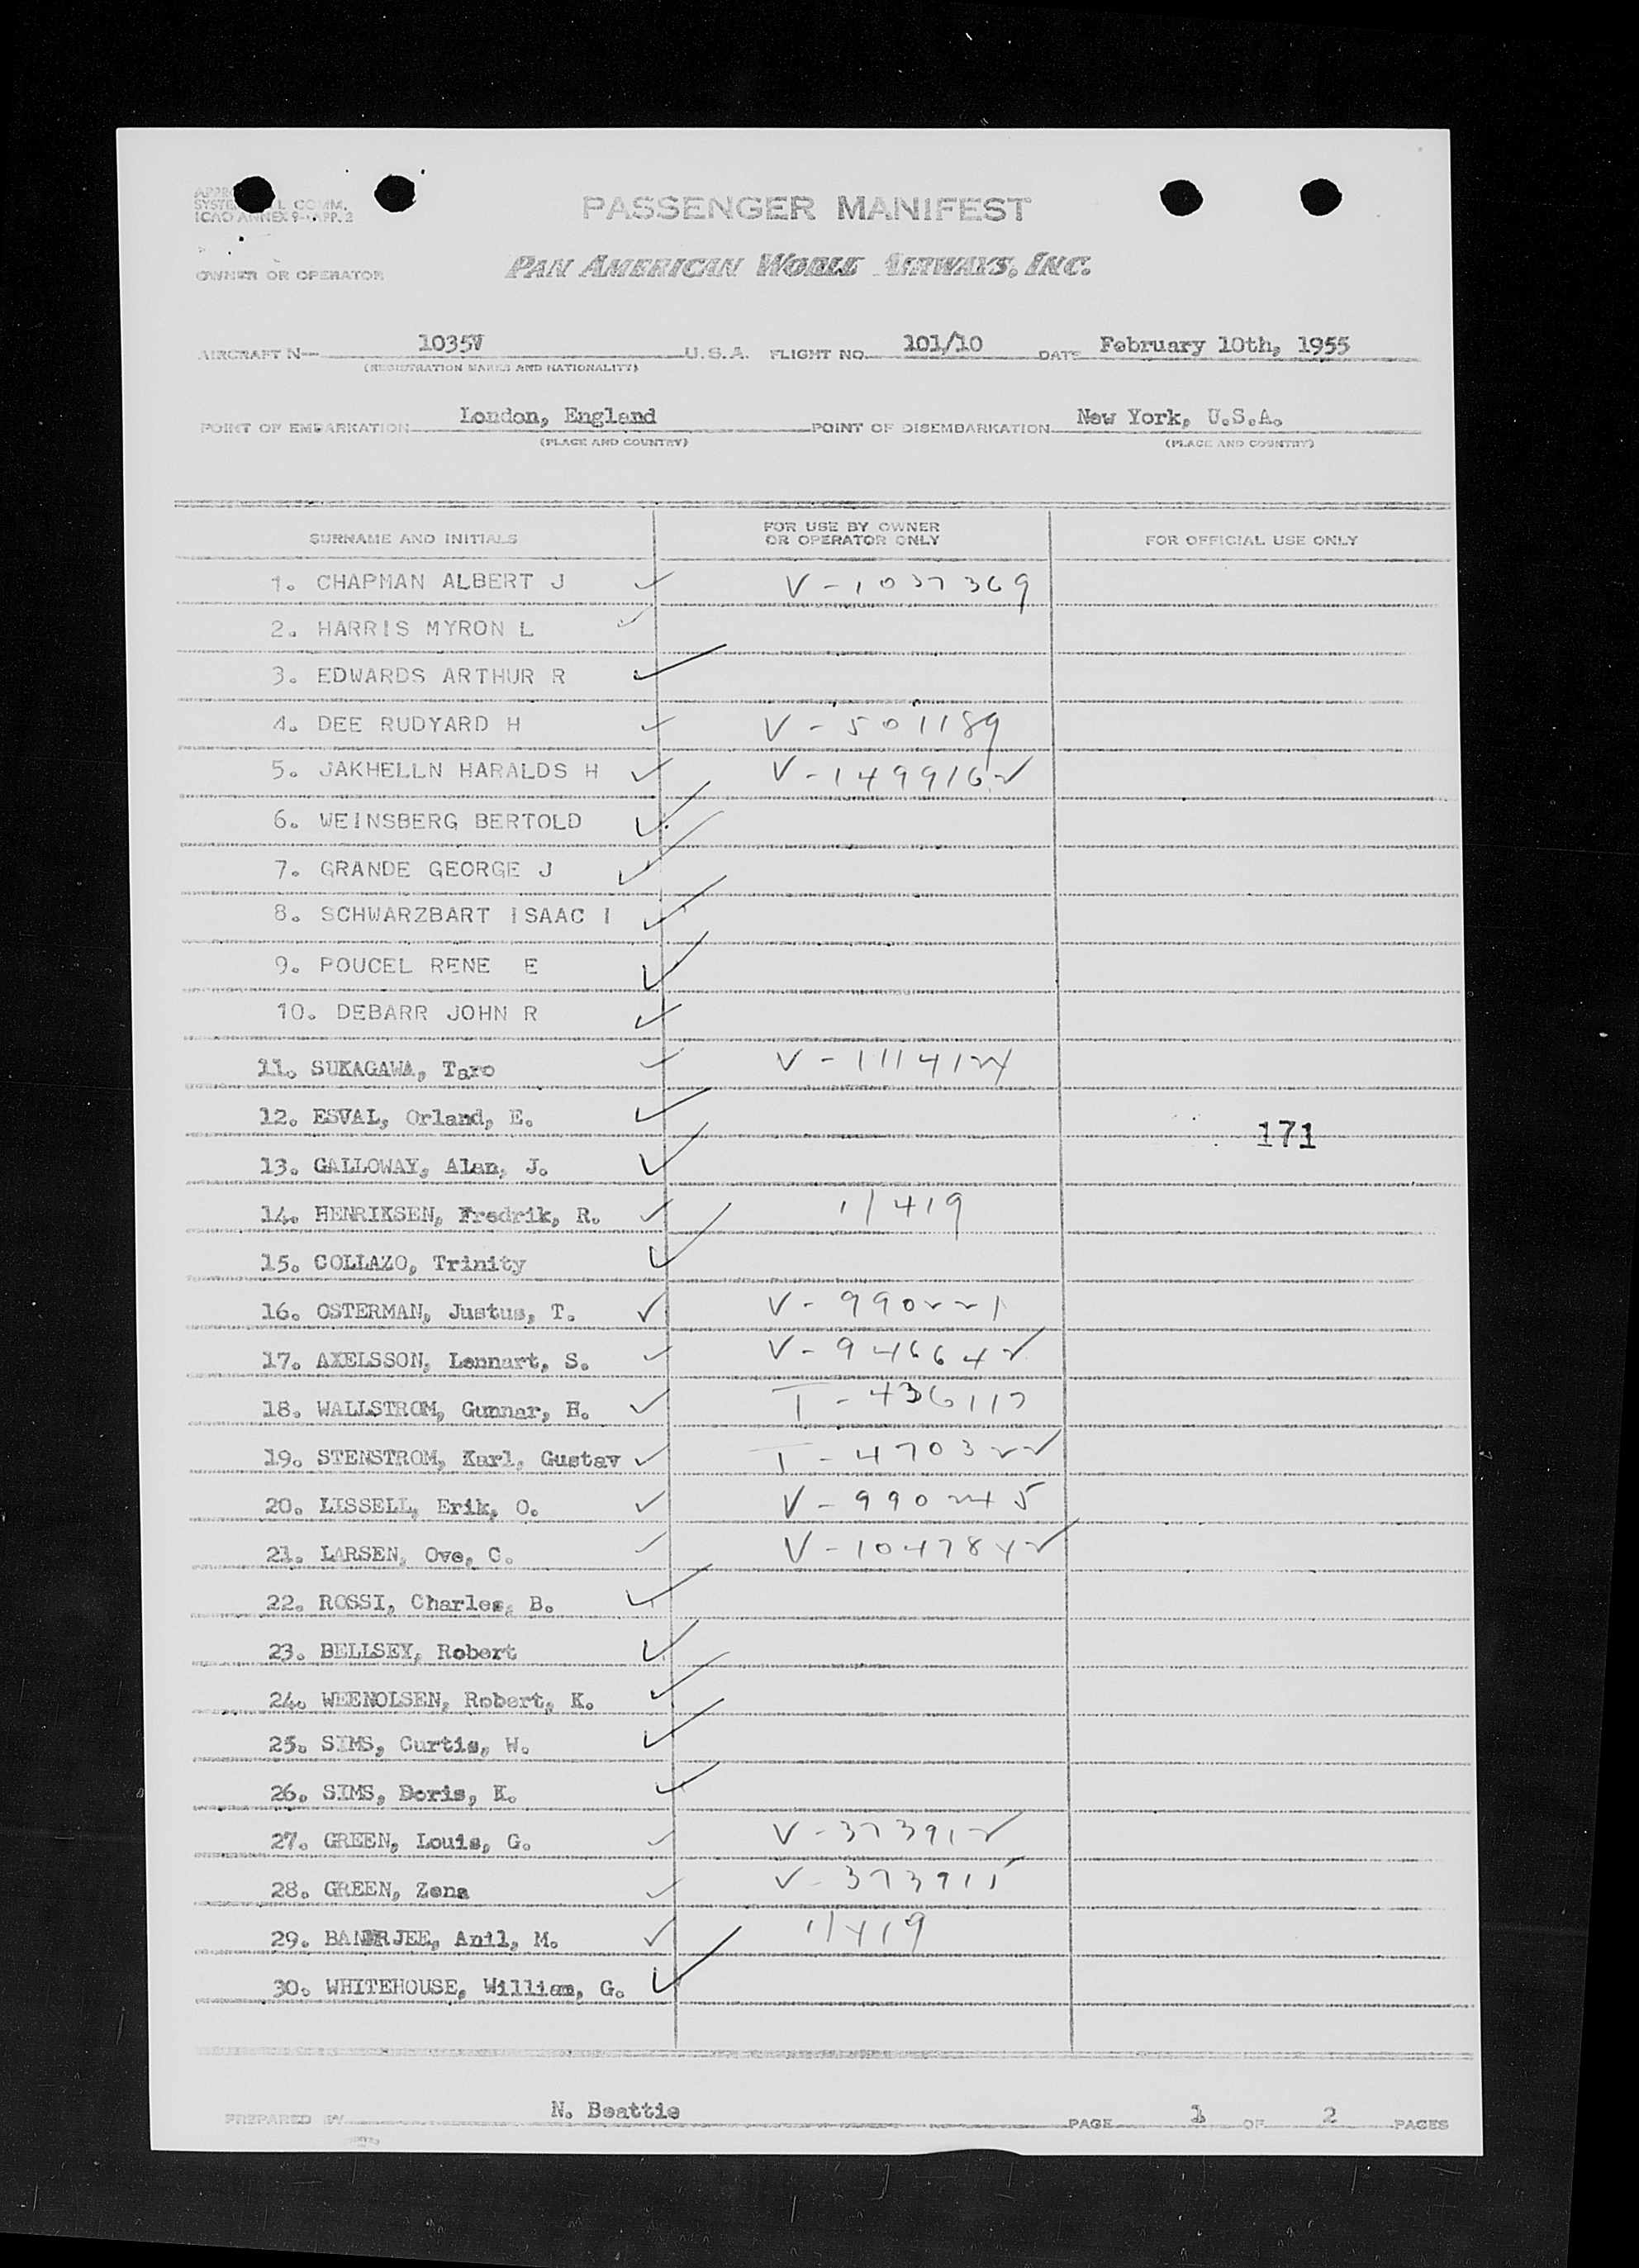 PASSENGER MANIFEST
COMM.
ICAO ANNEX 9-APP. 2
OWNER OR OPERATOR
PAN AMERICAN WORLD AIRWAYS, INC.
AIRCRAFT N— 1035V U.S.A. FLIGHT NO. 101/10 DATE February 10th, 1955
(REGISTRATION MARKS AND NATIONALITY)
POINT OF EMBARKATION London, England POINT OF DISEMBARKATION New York, U.S.A.
(PLACE AND COUNTRY) (PLACE AND COUNTRY)
SURNAME AND INITIALS FOR USE BY OWNER OR OPERATOR ONLY FOR OFFICIAL USE ONLY
1. CHAPMAN ALBERT J ✓ V-1037369
2. HARRIS MYRON L ✓
3. EDWARDS ARTHUR R ✓
4. DEE RUDYARD H ✓ V-501189
5. JAKHELLN HARALDS H ✓ V-1499162
6. WEINSBERG BERTOLD ✓
7. GRANDE GEORGE J ✓
8. SCHWARZBART ISAAC I ✓
9. POUCEL RENE E ✓
10. DEBARR JOHN R ✓
11. SUKAGAWA, Taro ✓ V-1114124
12. ESVAL, Orland, E. ✓
171
13. GALLOWAY, Alan, J. ✓
14. HENRIKSEN, Fredrik, R. ✓ 11419
15. COLLAZO, Trinity ✓
16. OSTERMAN, Justus, T. ✓ V-990221
17. AXELSSON, Lennart, S. ✓ V-946642
18. WALLSTROM, Gunnar, H. ✓ T-436117
19. STENSTROM, Karl, Gustav ✓ T-470322
20. LISSELL, Erik, O. ✓ V-990245
21. LARSEN, Ove, C. ✓ V-1047842
22. ROSSI, Charles, B. ✓
23. BELLSEY, Robert ✓
24. WEENOLSEN, Robert, K. ✓
25. SIMS, Curtis, W. ✓
26. SIMS, Doris, K. ✓
27. GREEN, Louis, G. ✓ V-373912
28. GREEN, Zena ✓ V-373911
29. BANERJEE, Anil, M. ✓ 11419
30. WHITEHOUSE, William, G. ✓
PREPARED BY N. Beattie PAGE 1 OF 2 PAGES